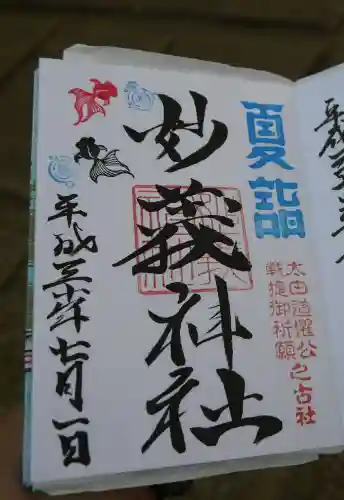 夏詣
太田道灌公之古社
戦捷御祈願
妙義神社
平成三十年七月一日